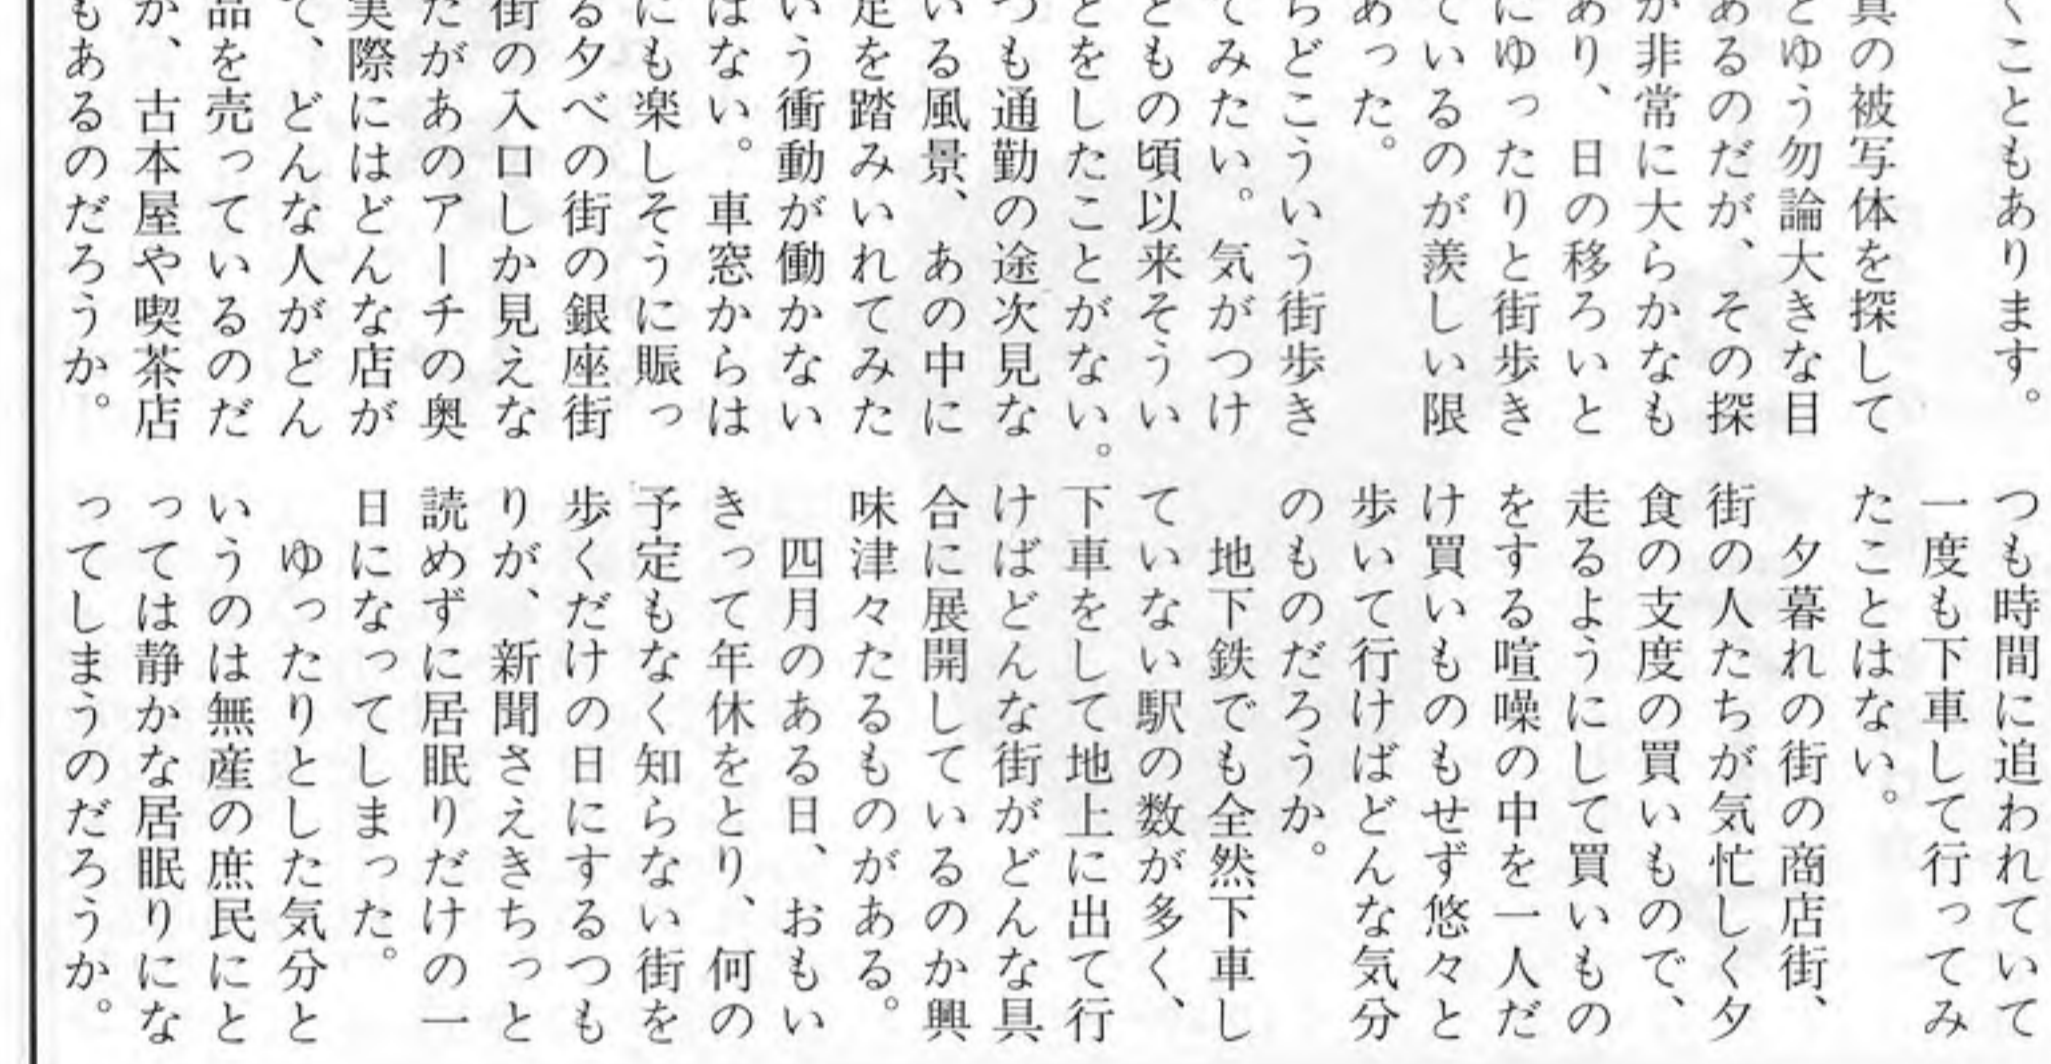 くこともあります。
真の被写体を探して
とゆう勿論大きな目
あるのだが、その探
が非常に大らかなも
あり、日の移ろいと
にゆったりと街歩き
ているのが羨しい限
あった。
らどこういう街歩き
てみたい。気がつけ
どもの頃以来そうい
とをしたことがない。
つも通勤の途次見な
いる風景、あの中に
足を踏みいれてみた
いう衝動が働かない
はない。車窓からは
にも楽しそうに賑っ
る夕べの街の銀座街
街の入口しか見えな
たがあのアーチの奥
実際にはどんな店が
て、どんな人がどん
品を売っているのだ
か、古本屋や喫茶店
もあるのだろうか。
つも時間に追われていて
一度も下車して行ってみ
たことはない。
夕暮れの街の商店街、
街の人たちが気忙しく夕
食の支度の買いもので、
走るようにして買いもの
をする喧噪の中を一人だ
け買いものもせず悠々と
歩いて行けばどんな気分
のものだろうか。
地下鉄でも全然下車し
ていない駅の数が多く、
下車をして地上に出て行
けばどんな街がどんな具
合に展開しているのか興
味津々たるものがある。
四月のある日、おもい
きって年休をとり、何の
予定もなく知らない街を
歩くだけの日にするつも
りが、新聞さえきちっと
読めずに居眠りだけの一
日になってしまった。
ゆったりとした気分と
いうのは無産の庶民にと
っては静かな居眠りにな
ってしまうのだろうか。